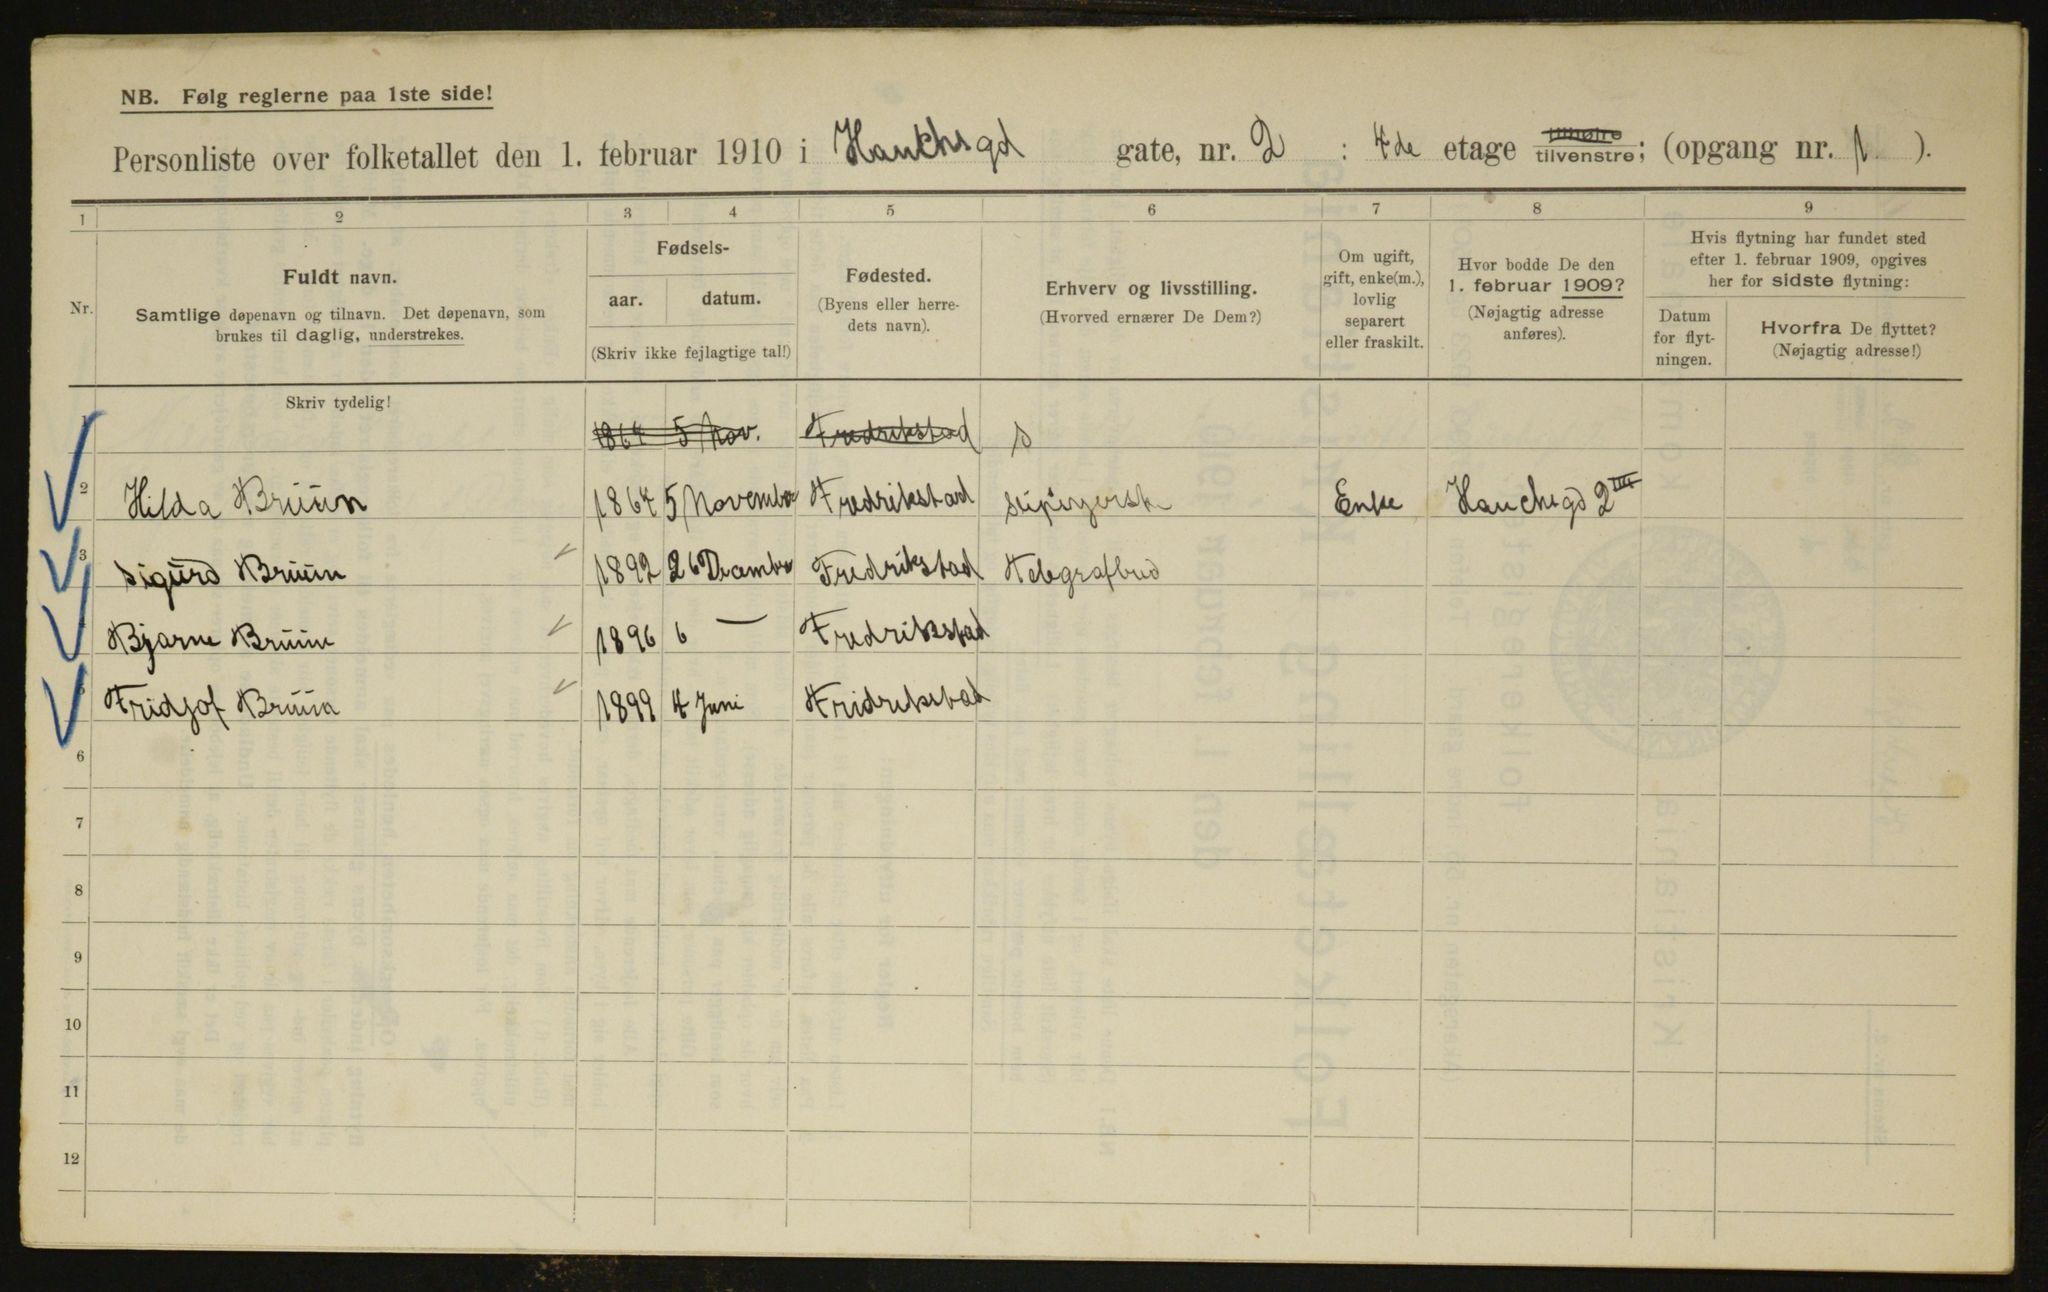 NB. Følg reglerne paa 1ste side!
Personliste over folketallet den 1. februar 1910 i Hauchsgd gate, nr. 2 : 4de etage tilhøire tilvenstre; (opgang nr. 1 ).
1 2 3 4 5 6 7 8 9
Nr.
Fuldt navn.
Samtlige døpenavn og tilnavn. Det døpenavn, som
brukes til daglig, understrekes.
Fødsels-
aar. datum.
(Skriv ikke fejlagtige tal!)
Fødested.
(Byens eller herre-
dets navn).
Erhverv og livsstilling.
(Hvorved ernærer De Dem?)
Om ugift,
gift, enke(m.),
lovlig
separert
eller fraskilt.
Hvor bodde De den
1. februar 1909?
(Nøjagtig adresse
anføres).
Hvis flytning har fundet sted
efter 1. februar 1909, opgives
her for sidste flytning:
Datum
for flyt-
ningen.
Hvorfra De flyttet?
(Nøjagtig adresse!)
Skriv tydelig!
1 1864 5 Nov. Fredrikstad
2 Hilda Bruun 1864 5 November Fredrikstad Enke Hauchsgd 2 IIII
3 Sigurd Bruun 1892 26 December Fredrikstad
Bjarne Bruun 1896 6 — Fredrikstad
5 Fridjof Bruun 1899 4 Juni Fridrikstad
6
7
8
9
10
11
12